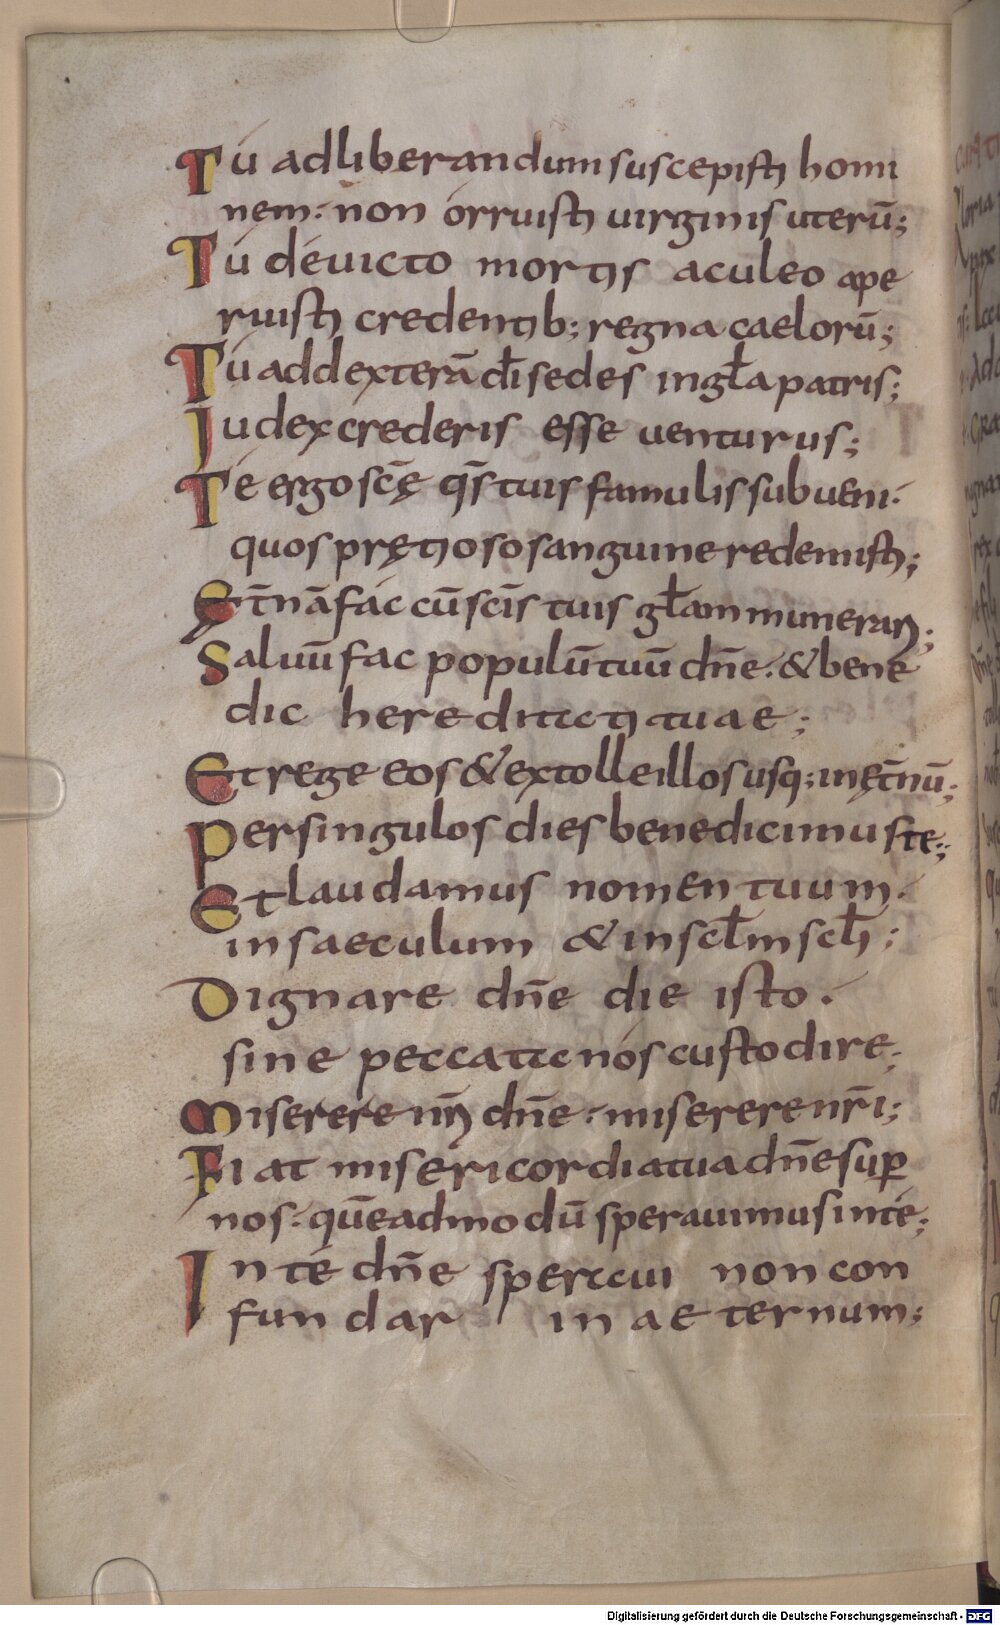 Tu ad liberandum suscepisti homi
nem: non orruisti uirginis uterū;
Tu deuicto mortis aculeo ape
ruisti credentib; regna caelorū;
Tu ad dexterā dī sedes in gła patris;
Iudex crederis esse uenturus;
Te ergo scē q̄s tuis famulis subueni.
quos pręcioso sanguine redemisti;
Et̄nā fac cū scīs tuis głam munerari;
Saluū fac populū tuū dn̄e. & bene
dic hereditati tuae;
Et rege eos & extolle illos usq; in ęt̄nū;
Per singulos dies benedicimus te;
Et laudamus nomen tuum.
in saeculum & in sclm scli;
Dignare dn̄e die isto.
sine peccato nos custodire;
Miserere nr̄i dn̄e. miserere nr̄i;
Fiat misericordia tua dn̄e sup
nos. quēadmodū sperauimus in te;
In te dn̄e speraui non con
fundar in aeternum;
Digitalisierung gefördert durch die Deutsche Forschungsgemeinschaft - DFG